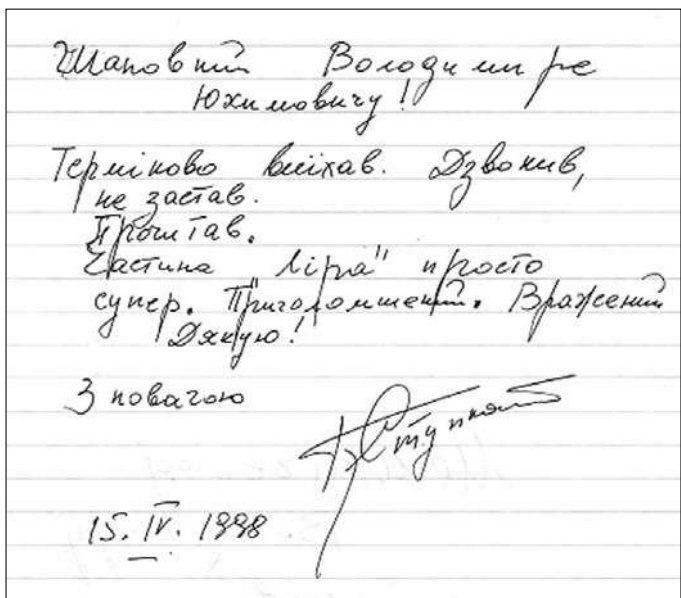 Шановний Володимире
Юхимовичу!
Терміново виїхав. Дзвонив,
не застав.
Прочитав.
Частина "Ліра" просто
супер. Приголомшений. Вражений
Дякую!
З повагою
БСтупка
15. IV. 1998